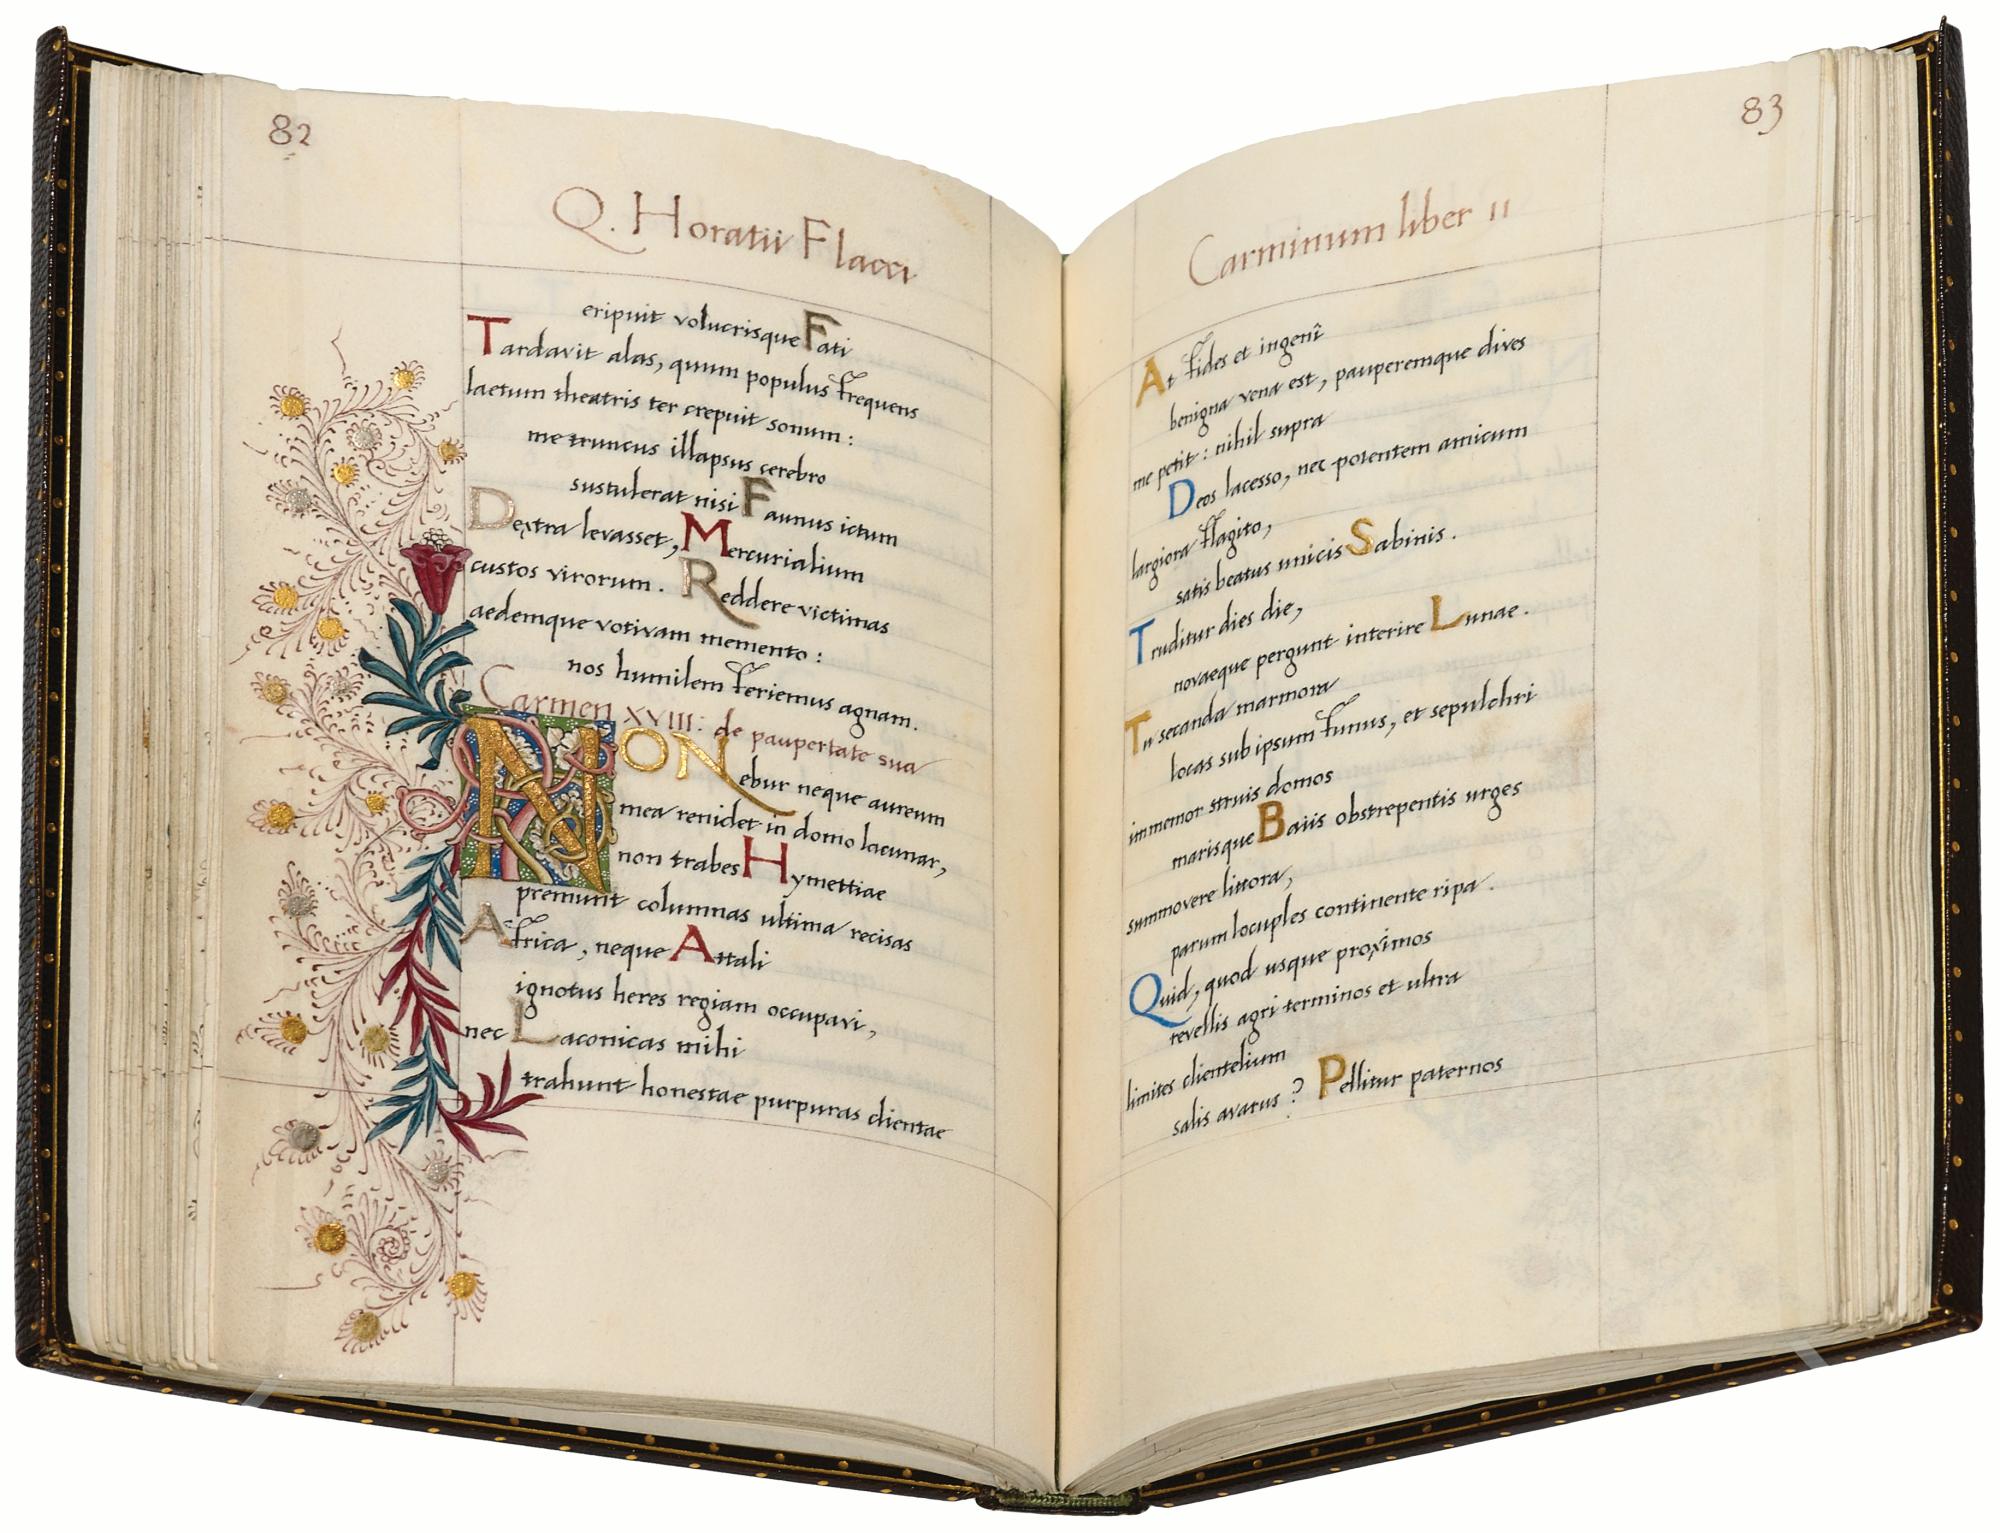 82
Q. Horatii Flacci
eripuit volucrisque Fati
Tardavit alas, quum populus frequens
laetum theatris ter crepuit sonum:
me truncus illapsus cerebro
sustulerat nisi Faunus ictum
Dextra levasset, Mercurialium
custos virorum. Reddere victimas
aedemque votivam memento:
nos humilem feriemus agnam.
Carmen XVIII: de paupertate sua
NON ebur neque aureum
mea renidet in domo lacunar,
non trabes Hymettiae
premunt columnas ultima recisas
Africa, neque Attali
ignotus heres regiam occupavi,
nec Laconicas mihi
trahunt honestae purpuras clientae
83
Carminum liber II
At fides et ingenî
benigna vena est, pauperemque dives
me petit: nihil supra
Deos lacesso, nec potentem amicum
largiora flagito,
satis beatus unicis Sabinis.
Truditur dies die,
novaeque pergunt interire Lunae.
Tu secanda marmora
locas sub ipsum funus, et sepulchri
immemor struis domos
marisque Baiis obstrepentis urges
summovere littora,
parum locuples continente ripa.
Quid, quod usque proximos
revellis agri terminos et ultra
limites clientelium
salis avarus? Pellitur paternos